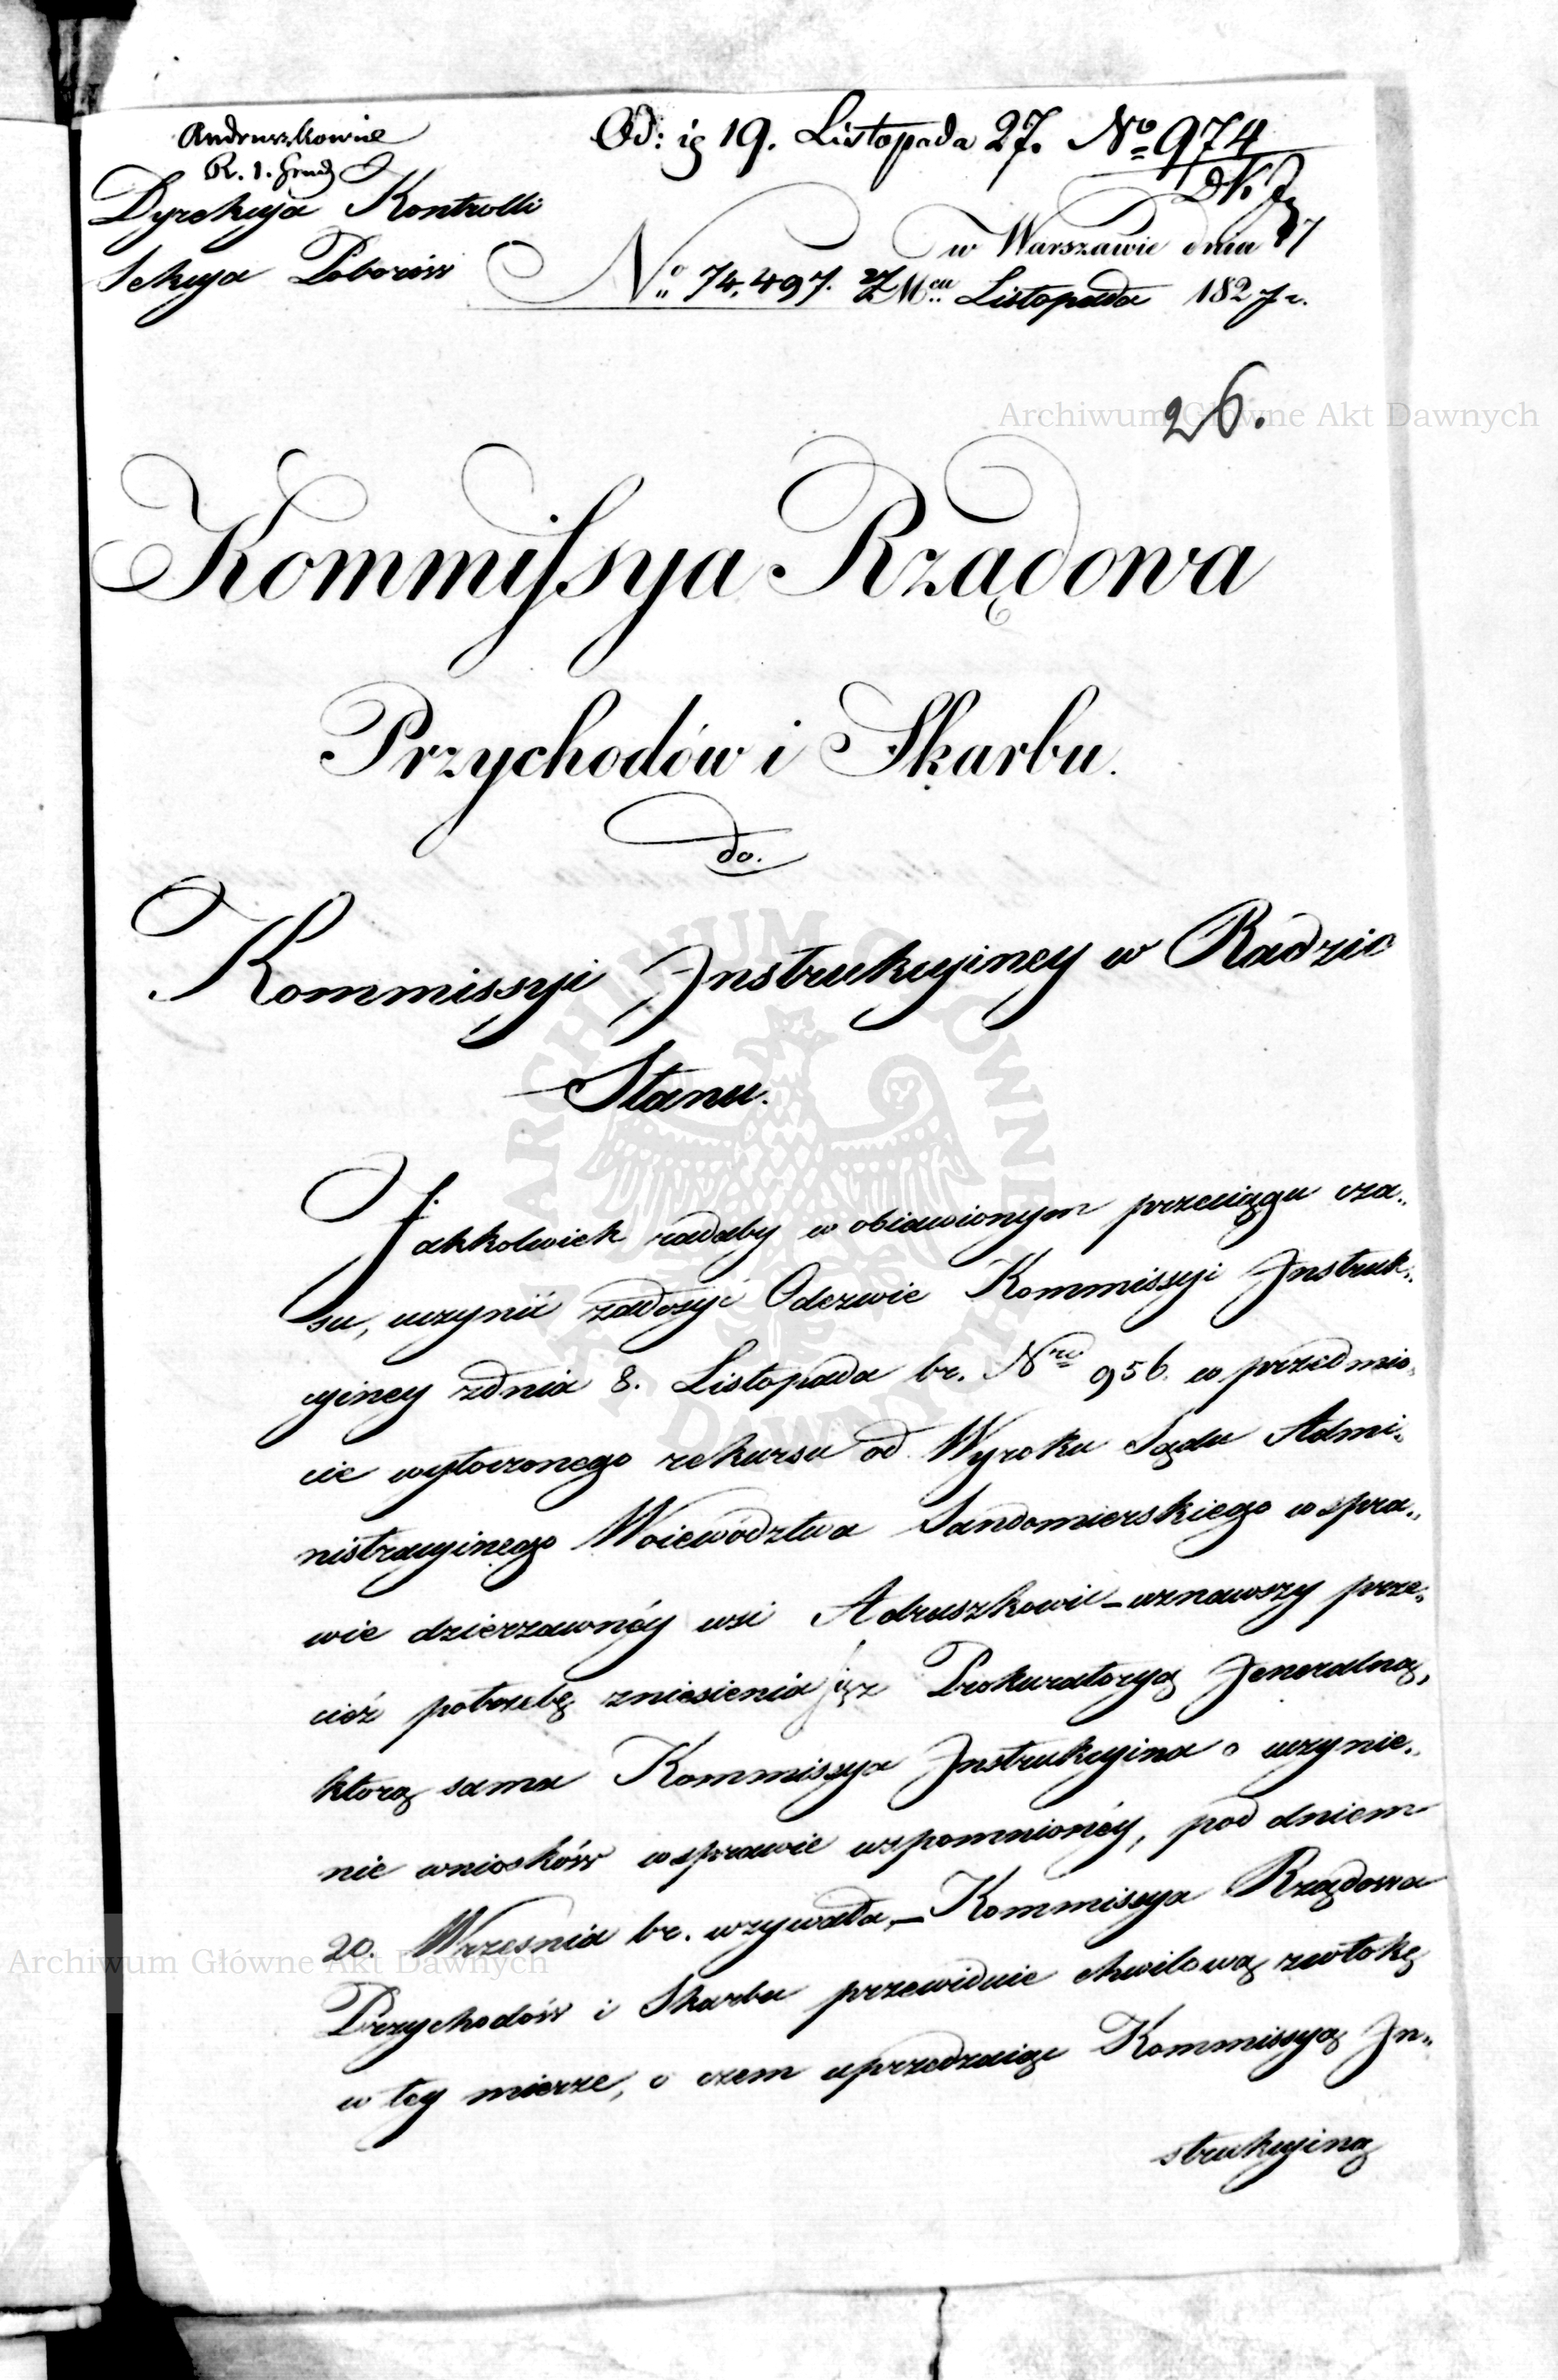 Andruszkowice
Od: ig 19. Listopada 27. No 974
R. 1.
Dyrekcyia Kontrolli
w Warszawie dnia 17
Sekcya Poborów
No 74,497. Mca Listopada 1827 r.
26.
Archiwum Główne Akt Dawnych
Kommissya Rządowa
Przychodów i Skarbu.
do.
Kommissyi Instrukcyiney w Radzie
Stanu.
Jakkolwiek radaby w obiawionym przeciągu cza„
su, uczynić zadosyć Odezwie Kommissyi Instruk„
cyiney zdnia 8. Listopada br. Nro 956. w przedmio„
cie wytoczonego rekursu od Wyroku Sądu Admi„
nistracyinego Woiewództwa Sandomierskiego w spra„
wie dzierzawnéy wsi Adruszkowic – uznawszy prze„
cież potrzebę zniesienia się z Prokuratoryą Jeneralną,
którą sama Kommissya Instrukcyina o uczynie„
nie wniosków w sprawie wspomnionéy, pod dniem
20. Wrzesnia br. wzywała, – Kommissya Rządowa
Archiwum Główne Akt Dawnych
Przychodów i Skarbu przewiduie chwilową zwłokę
w tey mierze, o czem uprzedzaiąc Kommissyą In„
strukcyiną
ARCHIWUM GŁÓWNE AKT DAWNYCH